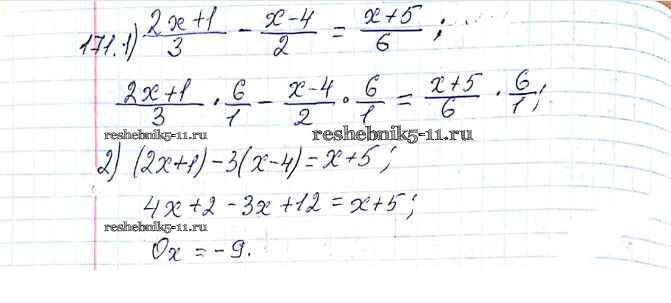 171.1) (2x+1)/3 - (x-4)/2 = (x+5)/6 ;
(2x+1)/3 · 6/1 - (x-4)/2 · 6/1 = (x+5)/6 · 6/1 ;
reshebnik5-11.ru reshebnik5-11.ru
2) (2x+1) - 3(x-4) = x+5 ;
4x+2-3x+12 = x+5 ;
reshebnik5-11.ru
0x = -9.